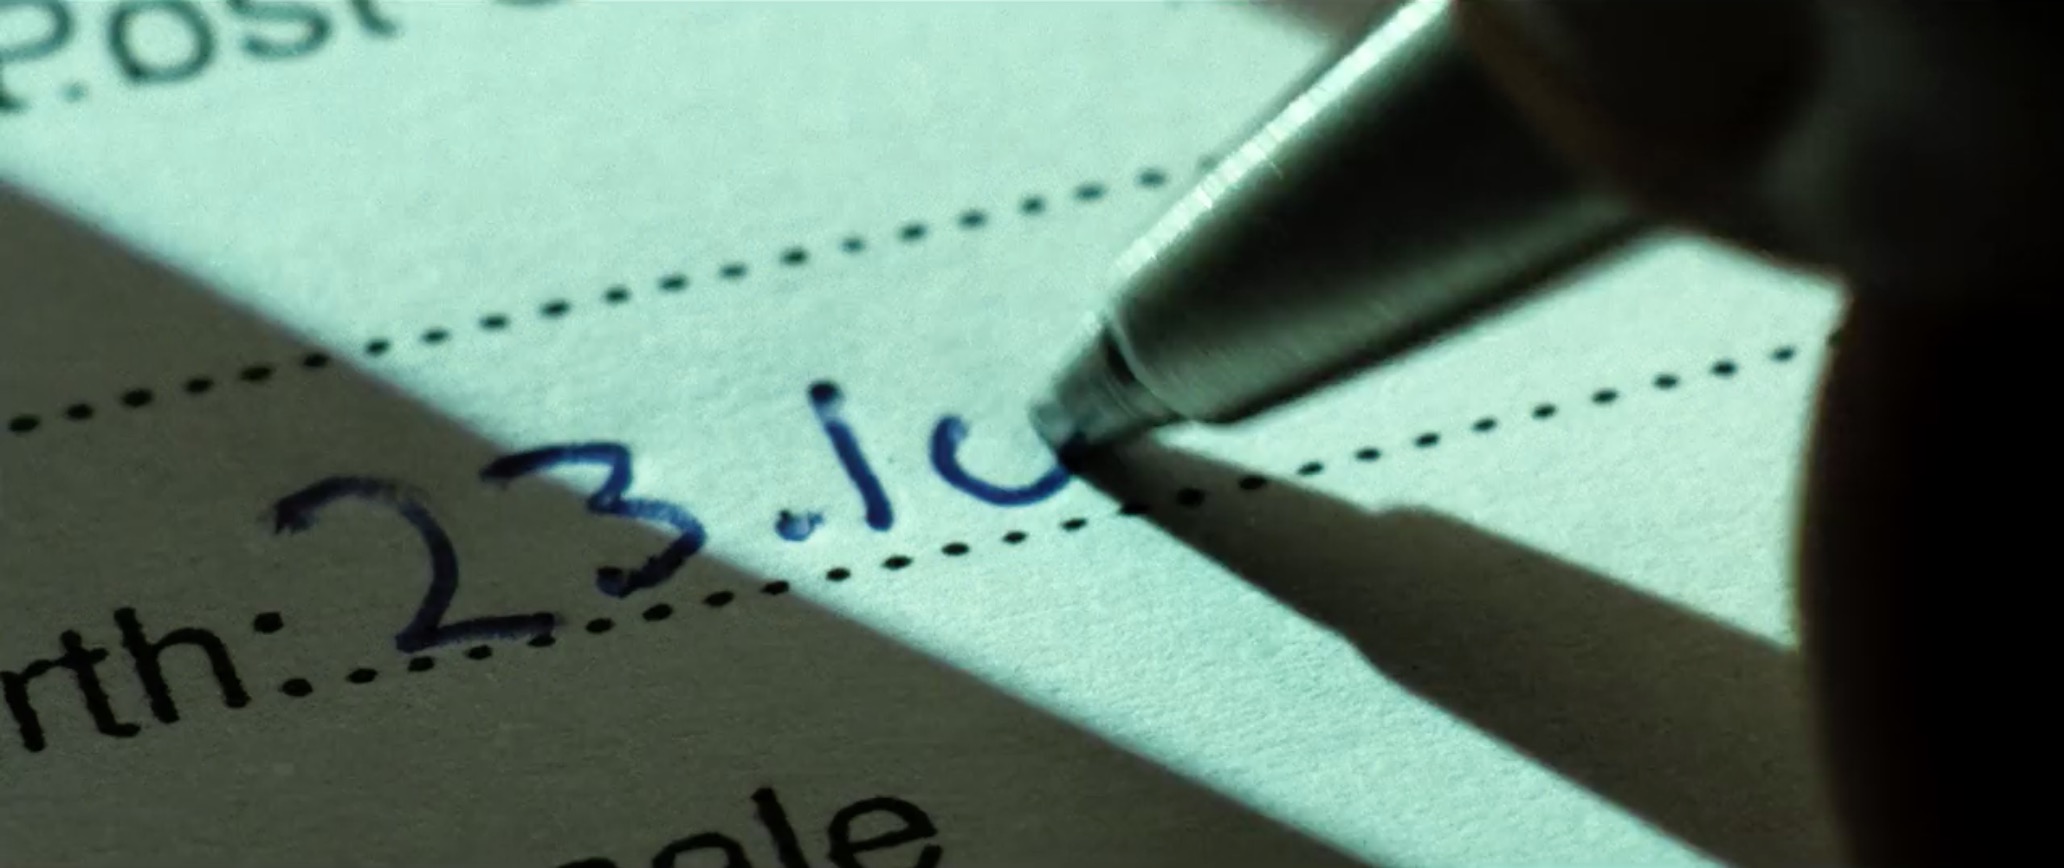 P.Ost
rth: 23.10
ale